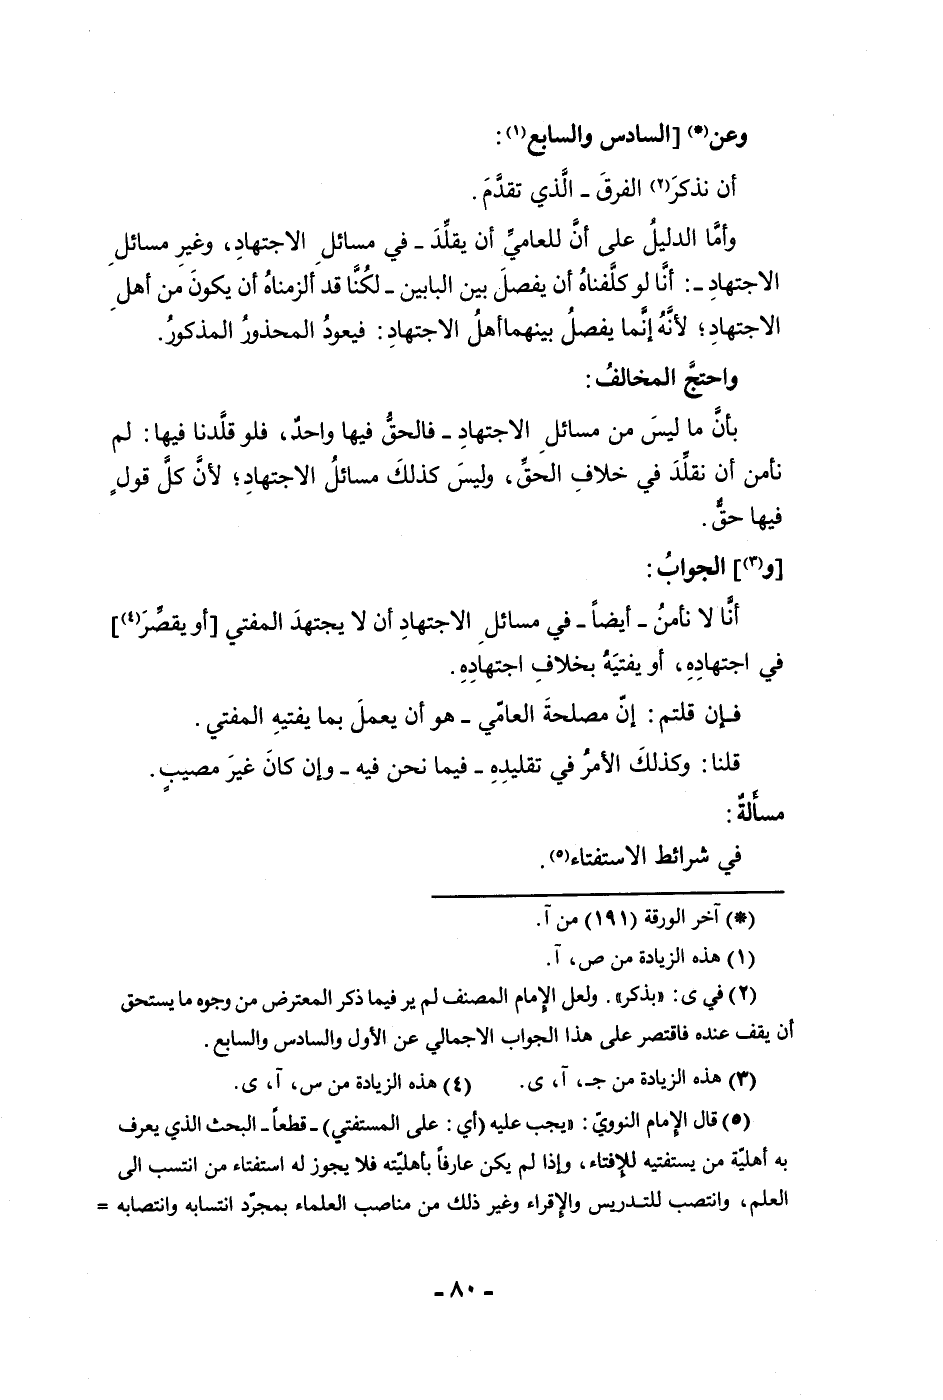 وعن(*) [السادس والسابع(١):
أن نذكرَ(٢) الفرقَ ـ الَّذي تقدَّمَ.
وأمَّا الدليلُ على أنَّ للعاميِّ أن يقلِّدَ ـ في مسائلِ الاجتهادِ، وغيرِ مسائلِ
الاجتهادِ ـ: أنَّا لو كلَّفناهُ أن يفصلَ بين البابين ـ لكُنَّا قد ألزمناهُ أن يكونَ من أهلِ
الاجتهادِ؛ لأنَّهُ إنَّما يفصلُ بينهما أهلُ الاجتهادِ: فيعودُ المحذورُ المذكورُ.
واحتجَّ المخالفُ:
بأنَّ ما ليسَ من مسائلِ الاجتهادِ ـ فالحقُّ فيها واحدٌ، فلو قلَّدنا فيها: لم
نأمن أن نقلِّدَ في خلافِ الحقِّ، وليسَ كذلكَ مسائلُ الاجتهادِ؛ لأنَّ كلَّ قولٍ
فيها حقٌّ.
[و(٣)] الجوابُ:
أنَّا لا نأمنُ ـ أيضاً ـ في مسائلِ الاجتهادِ أن لا يجتهدَ المفتي [أو يقصِّرَ(٤)]
في اجتهادِهِ، أو يفتيَهُ بخلافِ اجتهادِهِ.
فإن قلتم: إنّ مصلحةَ العامّي ـ هو أن يعملَ بما يفتيهِ المفتي.
قلنا: وكذلكَ الأمرُ في تقليدِهِ ـ فيما نحن فيه ـ وإن كانَ غيرَ مصيبٍ.
مسألةٌ:
في شرائط الاستفتاء(٥).
(*) آخر الورقة (١٩١) من آ.
(١) هذه الزيادة من ص، آ.
(٢) في ى: «بذكر». ولعل الإمام المصنف لم ير فيما ذكر المعترض من وجوه ما يستحق
أن يقف عنده فاقتصر على هذا الجواب الاجمالي عن الأول والسادس والسابع.
(٣) هذه الزيادة من جـ، آ، ى. (٤) هذه الزيادة من س، آ، ى.
(٥) قال الإمام النوويّ: «يجب عليه (أي: على المستفتي) ـ قطعاً ـ البحث الذي يعرف
به أهليّة من يستفتيه للإفتاء، وإذا لم يكن عارفاً بأهليّته فلا يجوز له استفتاء من انتسب الى
العلم، وانتصب للتدريس والإقراء وغير ذلك من مناصب العلماء بمجرّد انتسابه وانتصابه =
ـ ٨٠ ـ